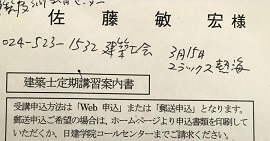 佐藤敏宏様
024-523-1532 建築士会
3月15日
ユラックス熱海
建築士定期講習案内書
受講申込方法は「Web 申込」または「郵送申込」となります。
郵送申込ご希望の場合は、ホームページより申込書類を印刷して
いただくか、日建学院コールセンターまでご請求ください。